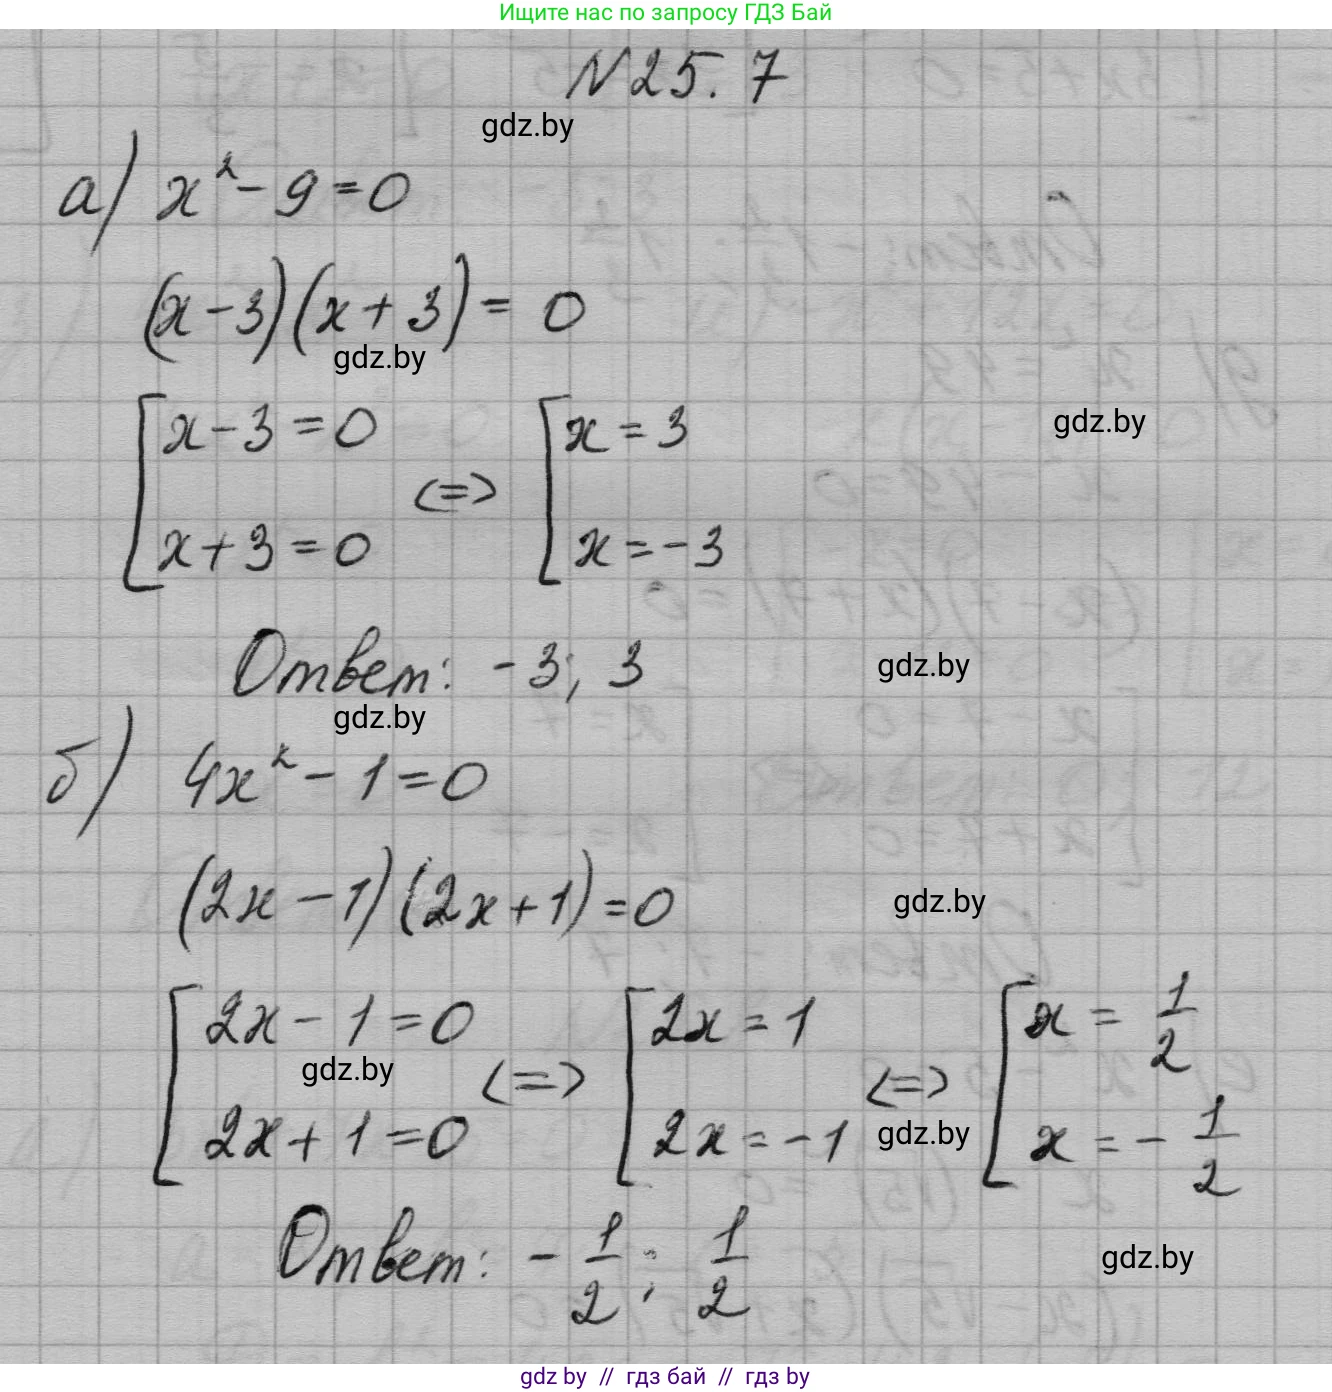 Ищите нас по запросу ГДЗ Бай
N 25.7
gdz.by
а) x² - 9 = 0
(x - 3)(x + 3) = 0
gdz.by
[ x - 3 = 0 <=> [ x = 3
gdz.by
x + 3 = 0 x = -3
Ответ: -3; 3
gdz.by
gdz.by
б) 4x² - 1 = 0
(2x - 1)(2x + 1) = 0
gdz.by
[ 2x - 1 = 0 <=> [ 2x = 1 <=> [ x = 1/2
gdz.by
2x + 1 = 0 2x = -1 x = - 1/2
gdz.by
Ответ: - 1/2; 1/2
gdz.by
gdz by // гдз бай // гдз by